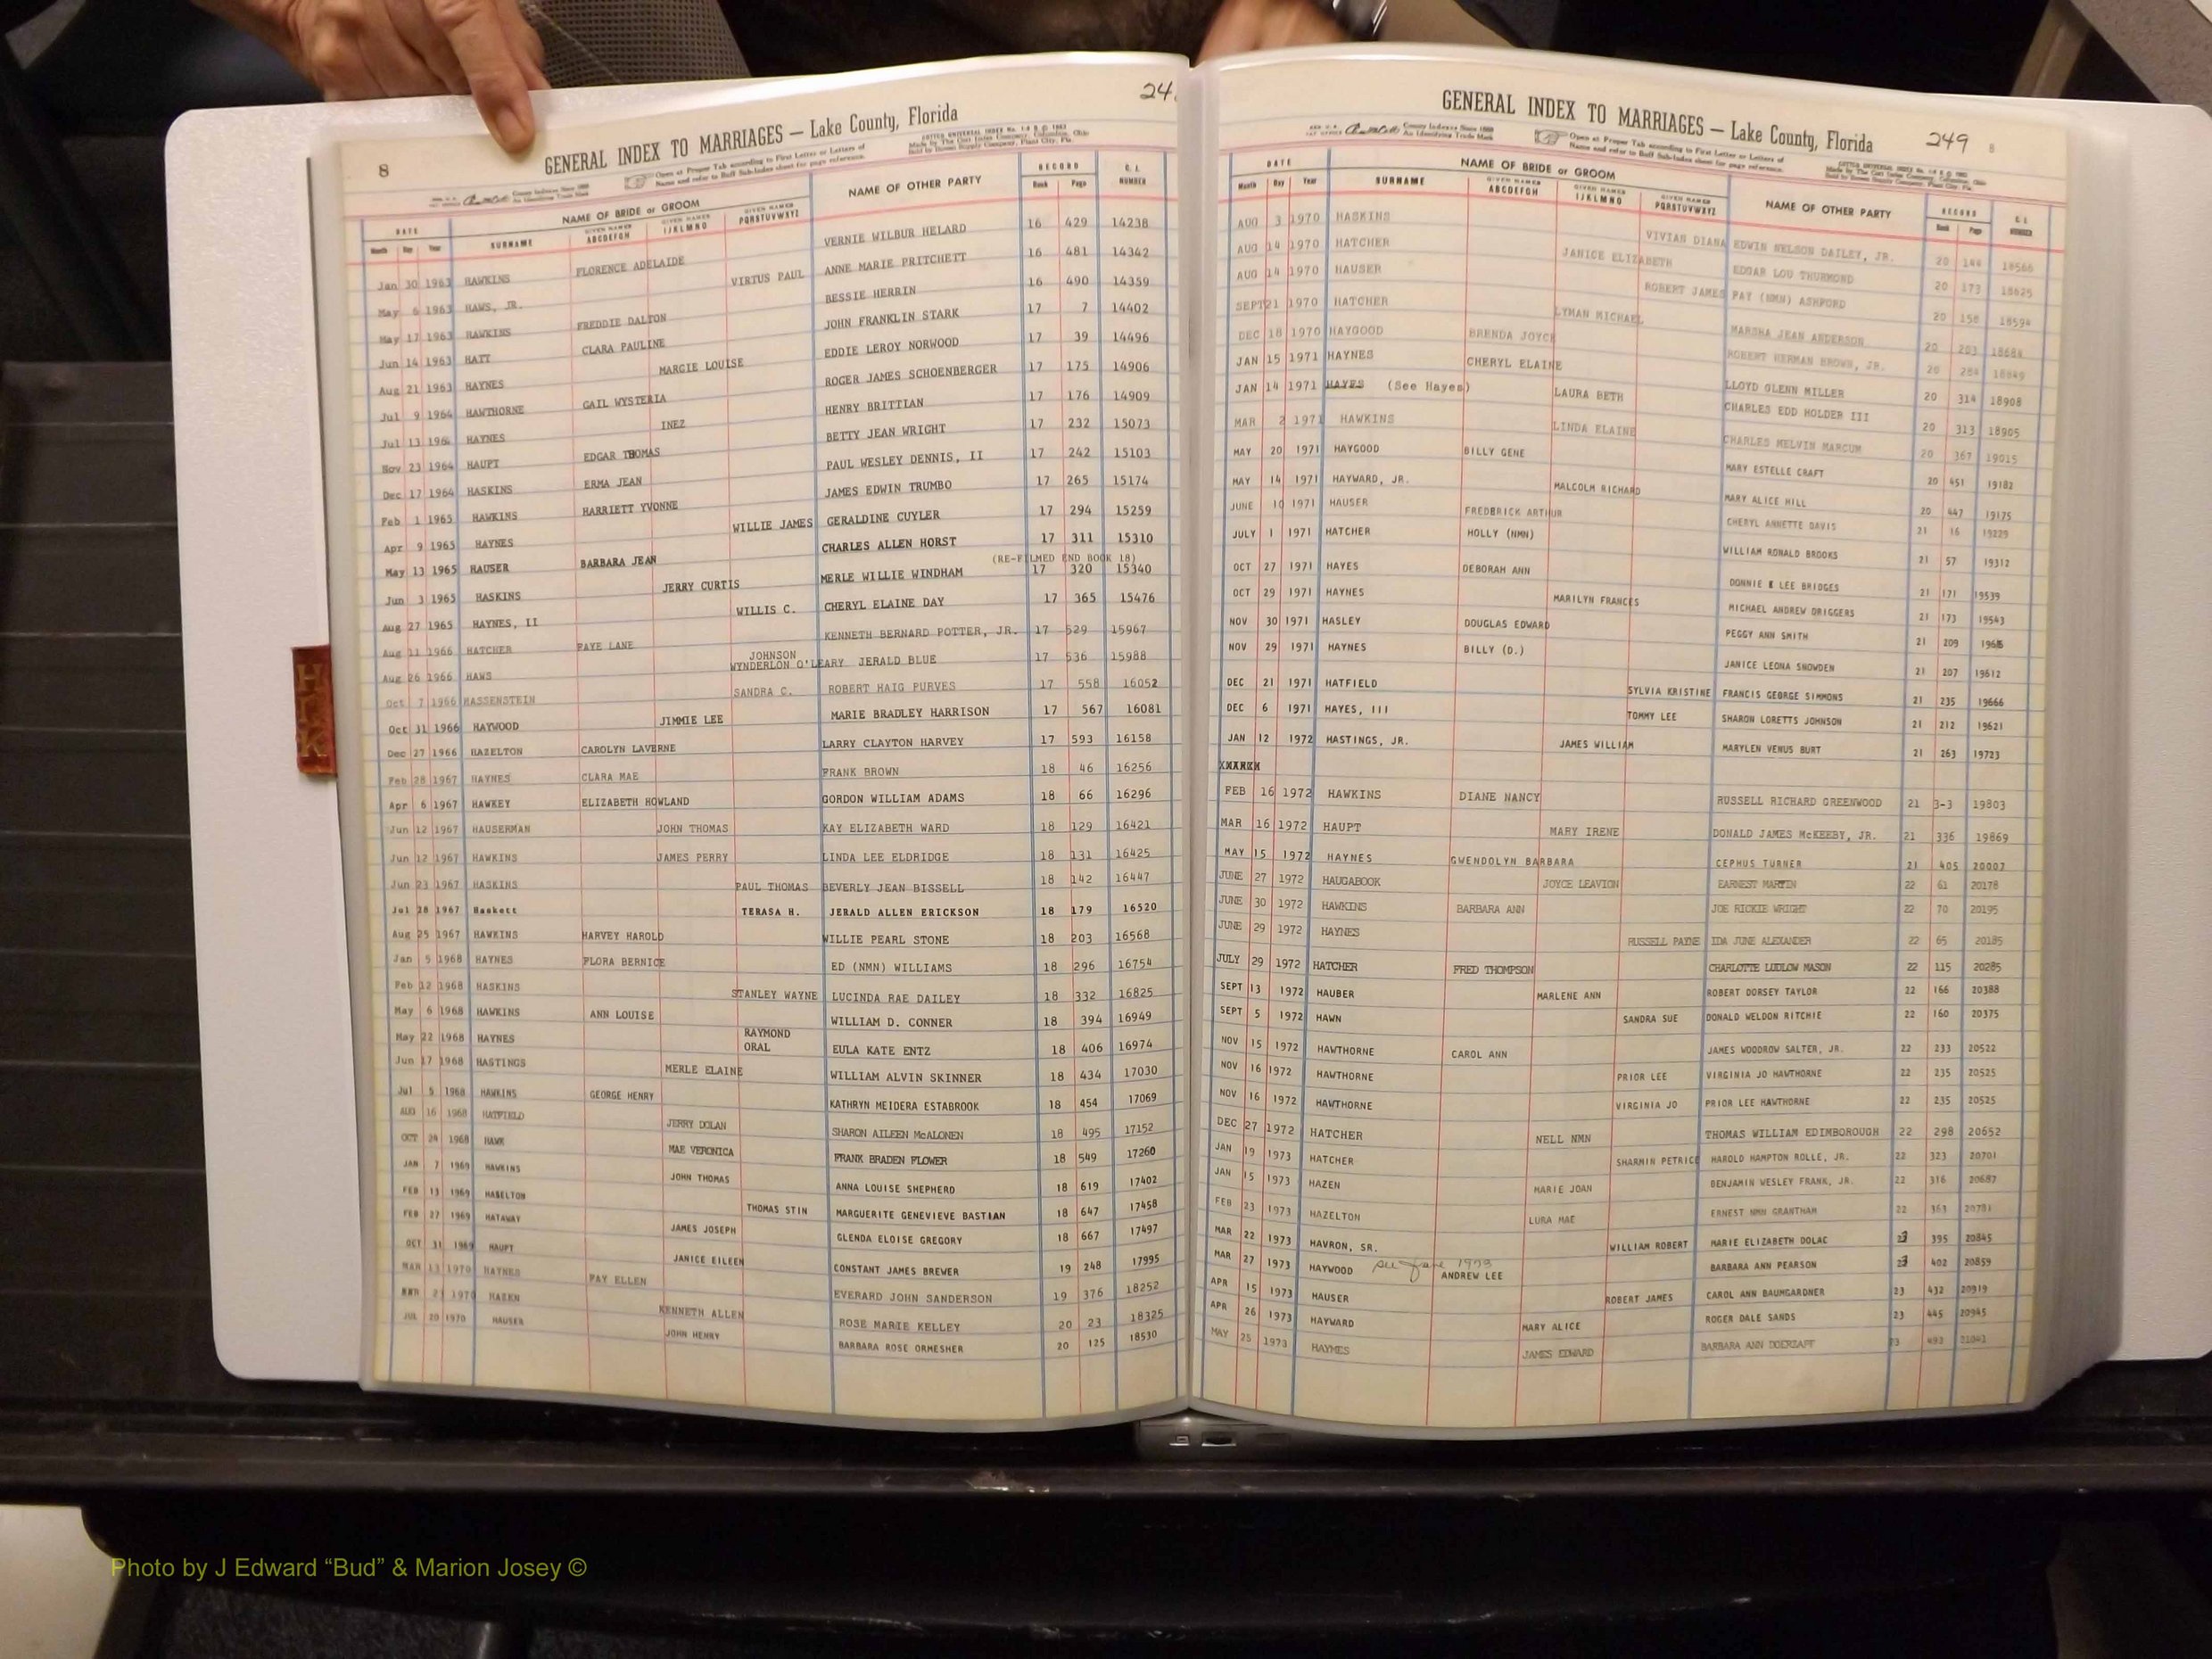 24
8
GENERAL INDEX TO MARRIAGES — Lake County, Florida
Open at Proper Tab according to First Letter or Letters of
Name and refer to Buff Sub-Index sheet for page reference.
DATE NAME OF BRIDE or GROOM NAME OF OTHER PARTY RECORD C. L.
Month Day Year SURNAME GIVEN NAMES ABCDEFGH GIVEN NAMES IJKLMNO GIVEN NAMES PQRSTUVWXYZ Book Page NUMBER
Jan 30 1963 HAWKINS FLORENCE ADELAIDE VERNIE WILBUR HELARD 16 429 14238
May 6 1963 HAWS, JR. VIRTUS PAUL ANNE MARIE PRITCHETT 16 481 14342
May 17 1963 HAWKINS FREDDIE DALTON BESSIE HERRIN 16 490 14359
Jun 14 1963 HATT CLARA PAULINE JOHN FRANKLIN STARK 17 7 14402
Aug 21 1963 HAYNES MARGIE LOUISE EDDIE LEROY NORWOOD 17 39 14496
Jul 9 1964 HAWTHORNE GAIL WYSTERIA ROGER JAMES SCHOENBERGER 17 175 14906
Jul 13 1964 HAYNES INEZ HENRY BRITTIAN 17 176 14909
Nov 23 1964 HAUPT EDGAR THOMAS BETTY JEAN WRIGHT 17 232 15073
Dec 17 1964 HASKINS ERMA JEAN PAUL WESLEY DENNIS, II 17 242 15103
Feb 1 1965 HAWKINS HARRIETT YVONNE JAMES EDWIN TRUMBO 17 265 15174
Apr 9 1965 HAYNES WILLIE JAMES GERALDINE CUYLER 17 294 15259
May 13 1965 HAUSER BARBARA JEAN CHARLES ALLEN HORST 17 311 15310
(RE-FILMED END BOOK 18)
Jun 3 1965 HASKINS JERRY CURTIS MERLE WILLIE WINDHAM 17 320 15340
Aug 27 1965 HAYNES, II WILLIS C. CHERYL ELAINE DAY 17 365 15476
Aug 11 1966 HATCHER FAYE LANE KENNETH BERNARD POTTER, JR. 17 529 15967
JOHNSON
Aug 26 1966 HAWS WYNDERLON O'LEARY JERALD BLUE 17 536 15988
Oct 7 1966 HASSENSTEIN SANDRA C. ROBERT HAIG PURVES 17 558 16052
Oct 31 1966 HAYWOOD JIMMIE LEE MARIE BRADLEY HARRISON 17 567 16081
Dec 27 1966 HAZELTON CAROLYN LAVERNE LARRY CLAYTON HARVEY 17 593 16158
Feb 28 1967 HAYNES CLARA MAE FRANK BROWN 18 46 16256
Apr 6 1967 HAWKEY ELIZABETH HOWLAND GORDON WILLIAM ADAMS 18 66 16296
Jun 12 1967 HAUSERMAN JOHN THOMAS KAY ELIZABETH WARD 18 129 16421
Jun 12 1967 HAWKINS JAMES PERRY LINDA LEE ELDRIDGE 18 131 16425
Jun 23 1967 HASKINS PAUL THOMAS BEVERLY JEAN BISSELL 18 142 16447
Jul 28 1967 Haskett TERASA H. JERALD ALLEN ERICKSON 18 179 16520
Aug 25 1967 HAWKINS HARVEY HAROLD WILLIE PEARL STONE 18 203 16568
Jan 5 1968 HAYNES FLORA BERNICE ED (NMN) WILLIAMS 18 296 16754
Feb 12 1968 HASKINS STANLEY WAYNE LUCINDA RAE DAILEY 18 332 16825
May 6 1968 HAWKINS ANN LOUISE WILLIAM D. CONNER 18 394 16949
May 22 1968 HAYNES RAYMOND ORAL EULA KATE ENTZ 18 406 16974
Jun 17 1968 HASTINGS MERLE ELAINE WILLIAM ALVIN SKINNER 18 434 17030
Jul 5 1968 HAWKINS GEORGE HENRY KATHRYN MEIDERA ESTABROOK 18 454 17069
AUG 16 1968 HATFIELD JERRY DOLAN SHARON AILEEN McALONEN 18 495 17152
OCT 24 1968 HAWK MAE VERONICA FRANK BRADEN FLOWER 18 549 17260
JAN 7 1969 HAWKINS JOHN THOMAS ANNA LOUISE SHEPHERD 18 619 17402
FEB 13 1969 HASELTON THOMAS STIN MARGUERITE GENEVIEVE BASTIAN 18 647 17458
FEB 27 1969 HATAWAY JAMES JOSEPH GLENDA ELOISE GREGORY 18 667 17497
OCT 31 1969 HAUPT JANICE EILEEN CONSTANT JAMES BREWER 19 248 17995
MAR 13 1970 HAYNES FAY ELLEN EVERARD JOHN SANDERSON 19 376 18252
1970 HASEN KENNETH ALLEN ROSE MARIE KELLEY 20 23 18325
JUL 20 1970 HAUSER JOHN HENRY BARBARA ROSE ORMESHER 20 125 18530
GENERAL INDEX TO MARRIAGES — Lake County, Florida
249 8
Open at Proper Tab according to First Letter or Letters of
Name and refer to Buff Sub-Index sheet for page reference.
DATE NAME OF BRIDE or GROOM NAME OF OTHER PARTY RECORD C. L.
Month Day Year SURNAME GIVEN NAMES ABCDEFGH GIVEN NAMES IJKLMNO GIVEN NAMES PQRSTUVWXYZ Book Page NUMBER
AUG 3 1970 HASKINS VIVIAN DIANA EDWIN NELSON DAILEY, JR. 20 144 18566
AUG 14 1970 HATCHER JANICE ELIZABETH EDGAR LOU THURMOND 20 173 18625
AUG 14 1970 HAUSER ROBERT JAMES FAY (NMN) ASHFORD 20 158 18594
SEPT 21 1970 HATCHER LYMAN MICHAEL MARSHA JEAN ANDERSON 20 203 18684
DEC 18 1970 HAYGOOD BRENDA JOYCE ROBERT HERMAN BROWN, JR. 20 284 18849
JAN 15 1971 HAYNES CHERYL ELAINE LLOYD GLENN MILLER 20 314 18908
JAN 14 1971 HAYES (See Hayes) LAURA BETH CHARLES EDD HOLDER III 20 313 18905
MAR 2 1971 HAWKINS LINDA ELAINE CHARLES MELVIN MARCUM 20 367 19015
MAY 20 1971 HAYGOOD BILLY GENE MARY ESTELLE CRAFT 20 451 19182
MAY 14 1971 HAYWARD, JR. MALCOLM RICHARD MARY ALICE HILL 20 447 19175
JUNE 10 1971 HAUSER FREDERICK ARTHUR CHERYL ANNETTE DAVIS 21 16 19229
JULY 1 1971 HATCHER HOLLY (NMN) WILLIAM RONALD BROOKS 21 57 19312
OCT 27 1971 HAYES DEBORAH ANN DONNIE LEE BRIDGES 21 171 19539
OCT 29 1971 HAYNES MARILYN FRANCES MICHAEL ANDREW DRIGGERS 21 173 19543
NOV 30 1971 HASLEY DOUGLAS EDWARD PEGGY ANN SMITH 21 209
NOV 29 1971 HAYNES BILLY (D.) JANICE LEONA SNOWDEN 21 207 19612
DEC 21 1971 HATFIELD SYLVIA KRISTINE FRANCIS GEORGE SIMMONS 21 235 19666
DEC 6 1971 HAYES, III TOMMY LEE SHARON LORETTS JOHNSON 21 212 19621
JAN 12 1972 HASTINGS, JR. JAMES WILLIAM MARYLEN VENUS BURT 21 263 19723
FEB 16 1972 HAWKINS DIANE NANCY RUSSELL RICHARD GREENWOOD 21 3-3 19803
MAR 16 1972 HAUPT MARY IRENE DONALD JAMES McKEEBY, JR. 21 336 19869
MAY 15 1972 HAYNES GWENDOLYN BARBARA CEPHUS TURNER 21 405 20007
JUNE 27 1972 HAUGABOOK JOYCE LEAVION EARNEST MARTIN 22 61 20178
JUNE 30 1972 HAWKINS BARBARA ANN JOE RICKIE WRIGHT 22 70 20195
JUNE 29 1972 HAYNES RUSSELL PAYNE IDA JUNE ALEXANDER 22 65 20185
JULY 29 1972 HATCHER FRED THOMPSON CHARLOTTE LUDLOW MASON 22 115 20285
SEPT 13 1972 HAUBER MARLENE ANN ROBERT DORSEY TAYLOR 22 166 20388
SEPT 5 1972 HAWN SANDRA SUE DONALD WELDON RITCHIE 22 160 20375
NOV 15 1972 HAWTHORNE CAROL ANN JAMES WOODROW SALTER, JR. 22 233 20522
NOV 16 1972 HAWTHORNE PRIOR LEE VIRGINIA JO HAWTHORNE 22 235 20525
NOV 16 1972 HAWTHORNE VIRGINIA JO PRIOR LEE HAWTHORNE 22 235 20525
DEC 27 1972 HATCHER NELL NMN THOMAS WILLIAM EDIMBOROUGH 22 298 20652
JAN 19 1973 HATCHER SHARMIN PETRICE HAROLD HAMPTON ROLLE, JR. 22 323 20701
JAN 15 1973 HAZEN MARIE JOAN BENJAMIN WESLEY FRANK, JR. 22 316 20687
FEB 23 1973 HAZELTON LURA MAE ERNEST NMN GRANTHAM 22 363 20781
MAR 22 1973 HAVRON, SR. WILLIAM ROBERT MARIE ELIZABETH DOLAC 23 395 20845
MAR 27 1973 HAYWOOD See June 1973 ANDREW LEE BARBARA ANN PEARSON 23 402 20859
APR 15 1973 HAUSER ROBERT JAMES CAROL ANN BAUMGARDNER 23 432 20919
APR 26 1973 HAYWARD MARY ALICE ROGER DALE SANDS 23 445 20945
MAY 25 1973 HAYMES JAMES EDWARD BARBARA ANN 23 493
H
K
Photo by J Edward “Bud” & Marion Josey ©